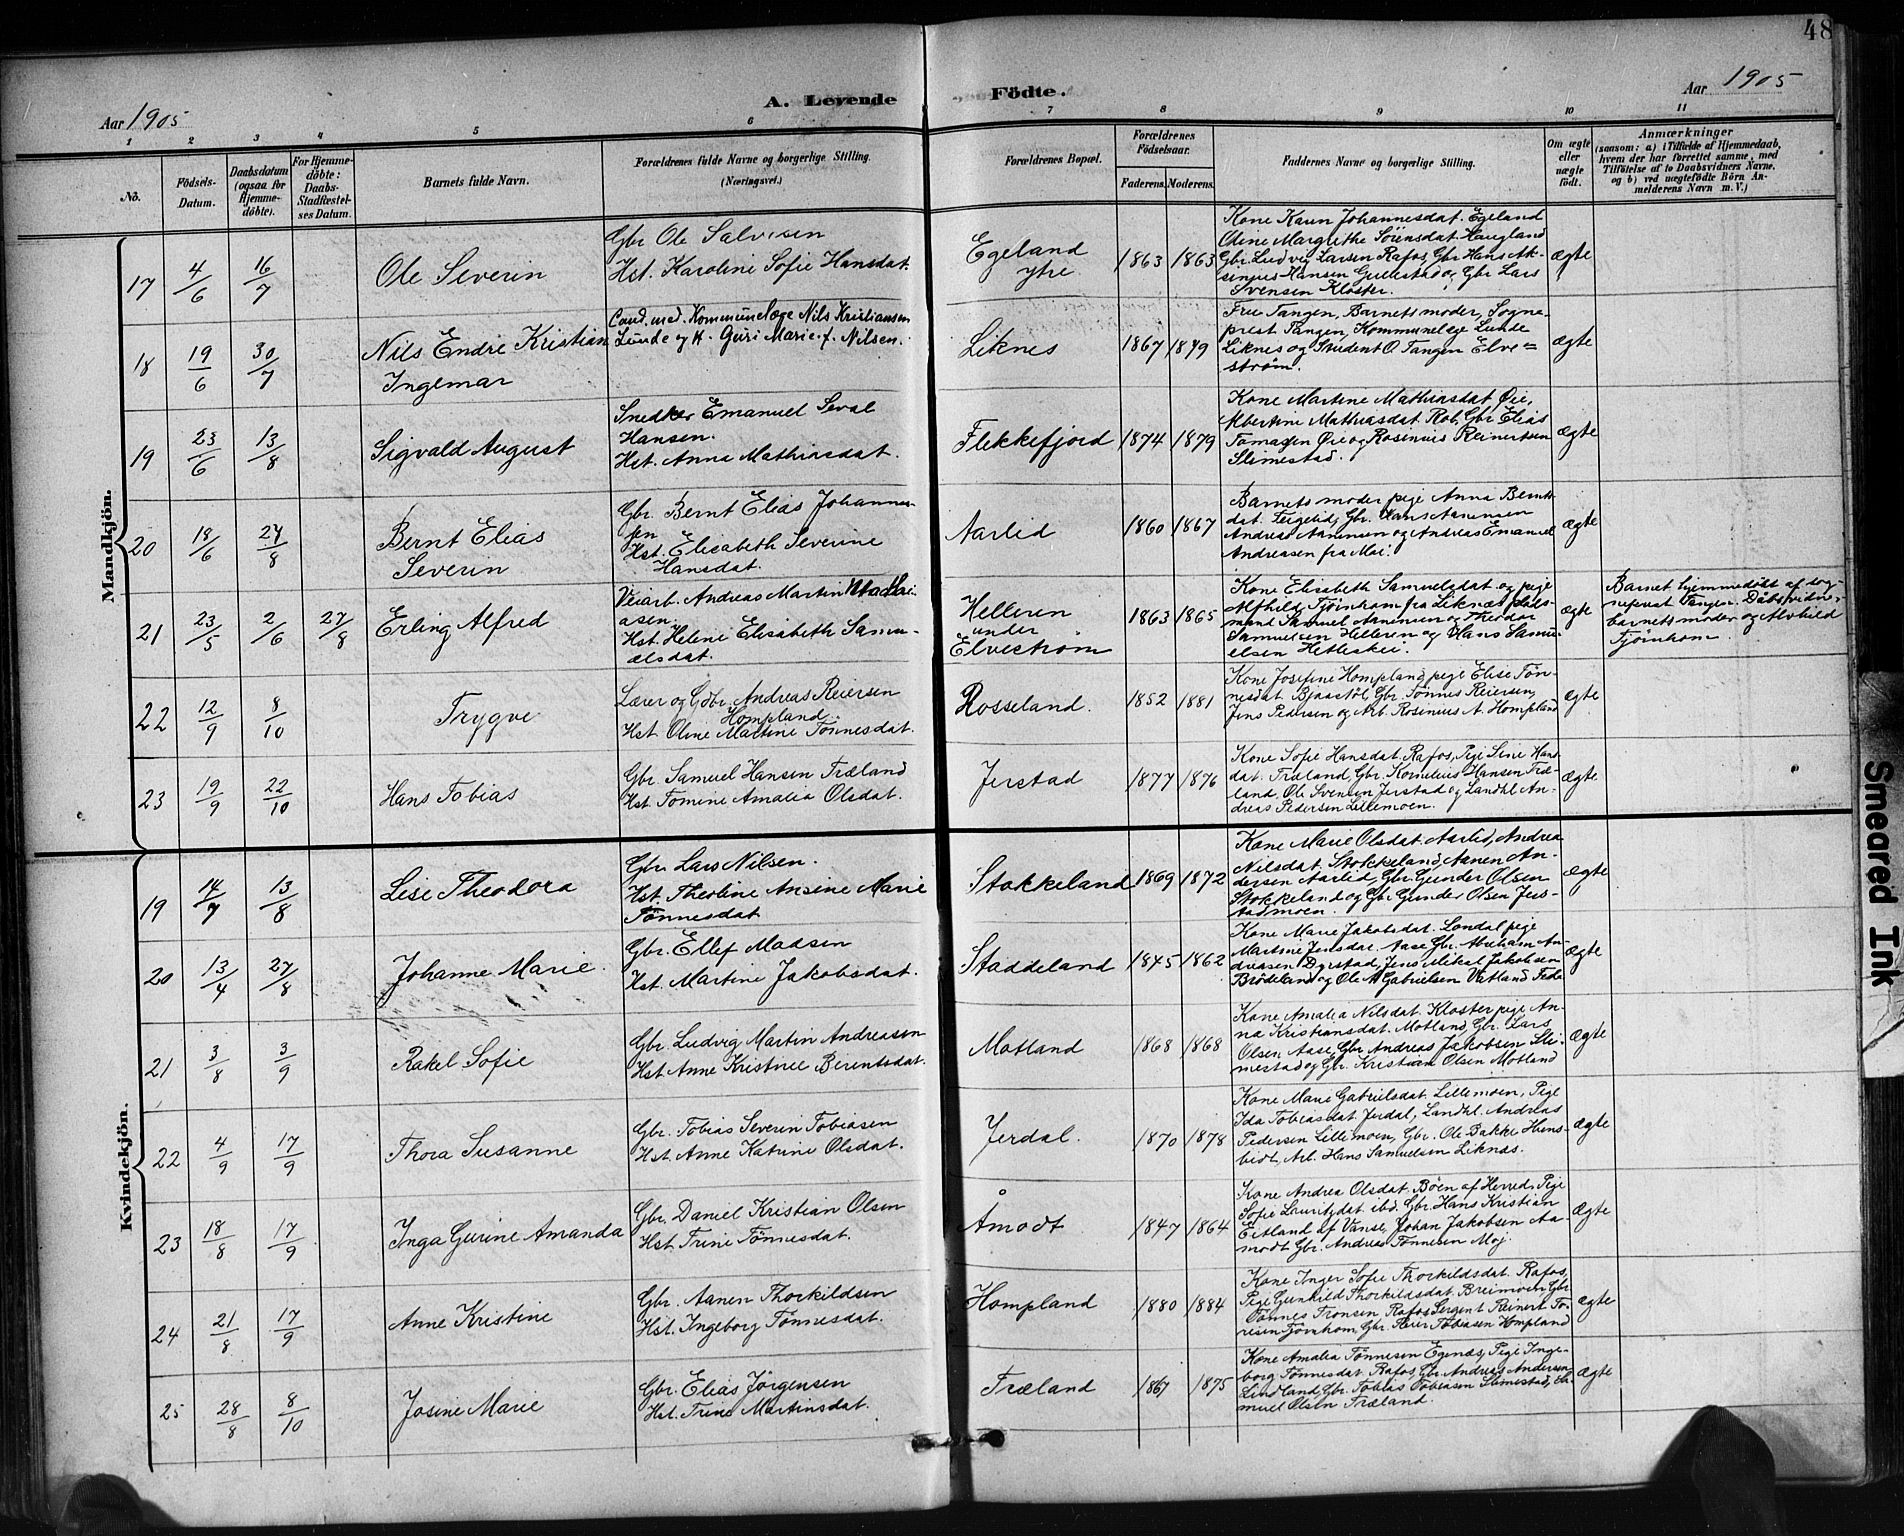 48
Aar 1905
A. Levende
Födte.
Aar 1905
1 2 3 4 5 6 7 8 9 10 11
No.
Födsels-Datum.
Daabsdatum (ogsaa for Hjemmedöbte).
For Hjemmedöbte: Daabs-Stadfæstelses Datum.
Barnets fulde Navn.
Forældrenes fulde Navne og borgerlige Stilling. (Næringsvei.)
Forældrenes Bopæl.
Forældrenes Födselsaar.
Faderens. Moderens.
Faddernes Navne og borgerlige Stilling.
Om ægte eller uægte födt.
Anmærkninger
(saasom: a) i Tilfælde af Hjemmedaab,
hvem der har forrettet samme, med
Tilföielse af to Daabsvidners Navne,
og b) ved uægtefödte Börn An-
melderens Navn m. V.)
Mandkjön.
17 4/6 16/7 Ole Severin
Gbr Ole Salvesen
Hst. Karoline Sofie Hansdat.
Egeland
ytre
1863 1863
Kone Karen Johannesdat. Egeland
Oline Margrithe Sörensdat. Haugland
Gbr. Ludvig Larsen Rafos, Gbr Hans Ak-
sinius Hansen Gullestad og Gbr Lars
Svensen Kloster.
ægte
18 19/6 30/7 Nils Endre Kristian
Ingemar
Cand. med. Kommunelæge Nils Kristiansen
Lunde og K. Guri Marie f. Nilsen.
Liknes
1867 1879
Fru Tangen, Barnets moder, Sogne-
prest Tangen, Kommunelæge Lunde
Liknes og Student O. Tangen Elve=
ström.
ægte
19 23/6 13/8 Sigvald August
Snedker Emanuel Seval
Hansen.
Hst. Anna Mathiasdat.
Flekkefjord
1874 1879
Kone Martine Mathiasdat Öie,
Albertine Mathiasdat. Rob, Gbr Elias
Tomassen Öie og Rosinius Reinertsen
Slimestad.
ægte
20 18/6 27/8 Bernt Elias
Severin
Gbr. Bernt Elias Johannes-
sen
Hst. Elisabeth Severine
Hansdat.
Aarlid
1860 1867
Barnets moder pige Anna Bernts-
dat. Feigelid, Gbr. Hans Aanensen
Andreas Aanensen og Andreas Emanuel
Andreasen fra Moi.
ægte
21 23/5 2/6 27/8 Erling Alfred
Veiarb. Andreas Martin Mathi-
asen
Hst. Helene Elisabeth Samu-
elsdat.
Helleren
under
Elveström
1863 1865
Kone Elisabeth Samuelsdat og pige
Alfhild Tjörnhom fra Liknes,
mand Samuel Aanensen og Theodor
Samuelsen Helleren og Hans Samu-
elsen Hetleskei.
ægte
Barnet hjemmedöbt af sog-
neprest Tangen. Daabsvidner
barnets moder og Alvhild
Tjörnhom.
22 12/9 8/10 Trygve
Lærer og Gdbr. Andreas Reiersen
Hompland.
Hst. Oline Martine Tönnesdat.
Rosseland.
1852 1881
Kone Josefine Hompland, pige Elise Tön-
nesdat Bjaastöl, Gbr. Tönnes Reiersen,
Jens Pedersen og Arb. Rosinius A. Hompland
ægte
23 19/9 22/10 Hans Tobias
Gbr. Samuel Hansen Træland
Hst. Tomine Amalia Olsdat.
Jerstad
1877 1876
Kone Sofie Hansdat. Rafos, Pige Sine Hans-
dat. Træland, Gbr. Kornelius Hansen Træ-
land, Ole Svensen Jerstad og Landhl. An-
dreas Pedersen Lillemoen.
ægte
Kvindekjön.
19 14/7 13/8 Lise Theodora
Gbr Lars Nilsen.
Hst. Theoline Ansine Marie
Tönnesdat
Stokkeland
1869 1872
Kone Marie Olsdat. Aarlid, Andrea
Nilsdat. Stokkeland, Aanen An-
dersen Aarlid, Gbr. Gunder Olsen
Stokkeland og Gbr Gunder Olsen Jer-
stadmoen.
ægte
20 13/4 27/8 Johanne Marie.
Gbr. Ellef Madsen
Hst. Martine Jakobsdat.
Staddeland
1845 1862
Kone Marie Jakobsdat. Londal pige
Martine Jensdat. Aase, Gbr. Abraham An-
dreasen Dyrstad, Jens Mikal Jakobsen
Brödeland og Ole M Gabrielsen Vatland Fede
ægte
21 3/8 3/9 Rakel Sofie
Gbr. Ludvig Martin Andreasen
Hst. Anne Kristine Berentsdat.
Motland
1868 1868
Kone Amalia Nilsdat. Kloster pige An-
na Kristiansdat. Motland, Gbr. Lars
Olsen Aase, Gbr Andreas Jakobsen Sli-
mestad og Gbr. Kristian Olsen Motland
ægte
22 4/9 17/9 Thora Susanne
Gbr. Tobias Severin Tobiasen
Hst. Anne Katrine Olsdat.
Jerdal.
1870 1878
Kone Marie Gabrielsdat. Lillemoen, Pige
Ida Tobiasdat. Jerdal, Landhl. Andreas
Pedersen Lillemoen, Gbr. Ole Bakke Huns-
bidt, Arb. Hans Samuelsen Liknes.
ægte
23 18/8 17/9 Inga Gurine Amanda
Gbr. Daniel Kristian Olsen
Hst. Trine Tönnesdat.
Åmodt
1847 1864
Kone Andrea Olsdat. Böen af Herred, Pige
Sofie Lauritzdat ibd. Gbr. Hans Kristian
Eitland af Vanse, Johan Jakobsen Aa-
modt Gbr. Andreas Tönnesen Moj.
ægte
24 21/8 17/9 Anne Kristine
Gbr. Aanen Thorkildsen
Hst. Ingeborg Tönnesdat.
Hompland
1880 1884
Kone Inger Sofie Thorkildsdat. Rafos,
Pige Gunhild Thorkildsdat. Breimoen, Gbr
Tönnes Tronsen Rafos Sergent Reinert To-
resen Tjörnhom, Gbr. Reier Tobiasen Hompland
ægte
25 28/8 8/10 Josine Marie
Gbr. Elias Jörgensen
Hst. Trine Martinsdat.
Træland
1867 1875
Kone Amalia Tönnesen Egenæs, Pige Inge-
borg Tönnesdat. Rafos, Gbr Andreas Andersen
Lindland, Gbr. Tobias Tobiasen Slimestad, Sa-
muel Olsen Træland.
ægte
Smeared Ink